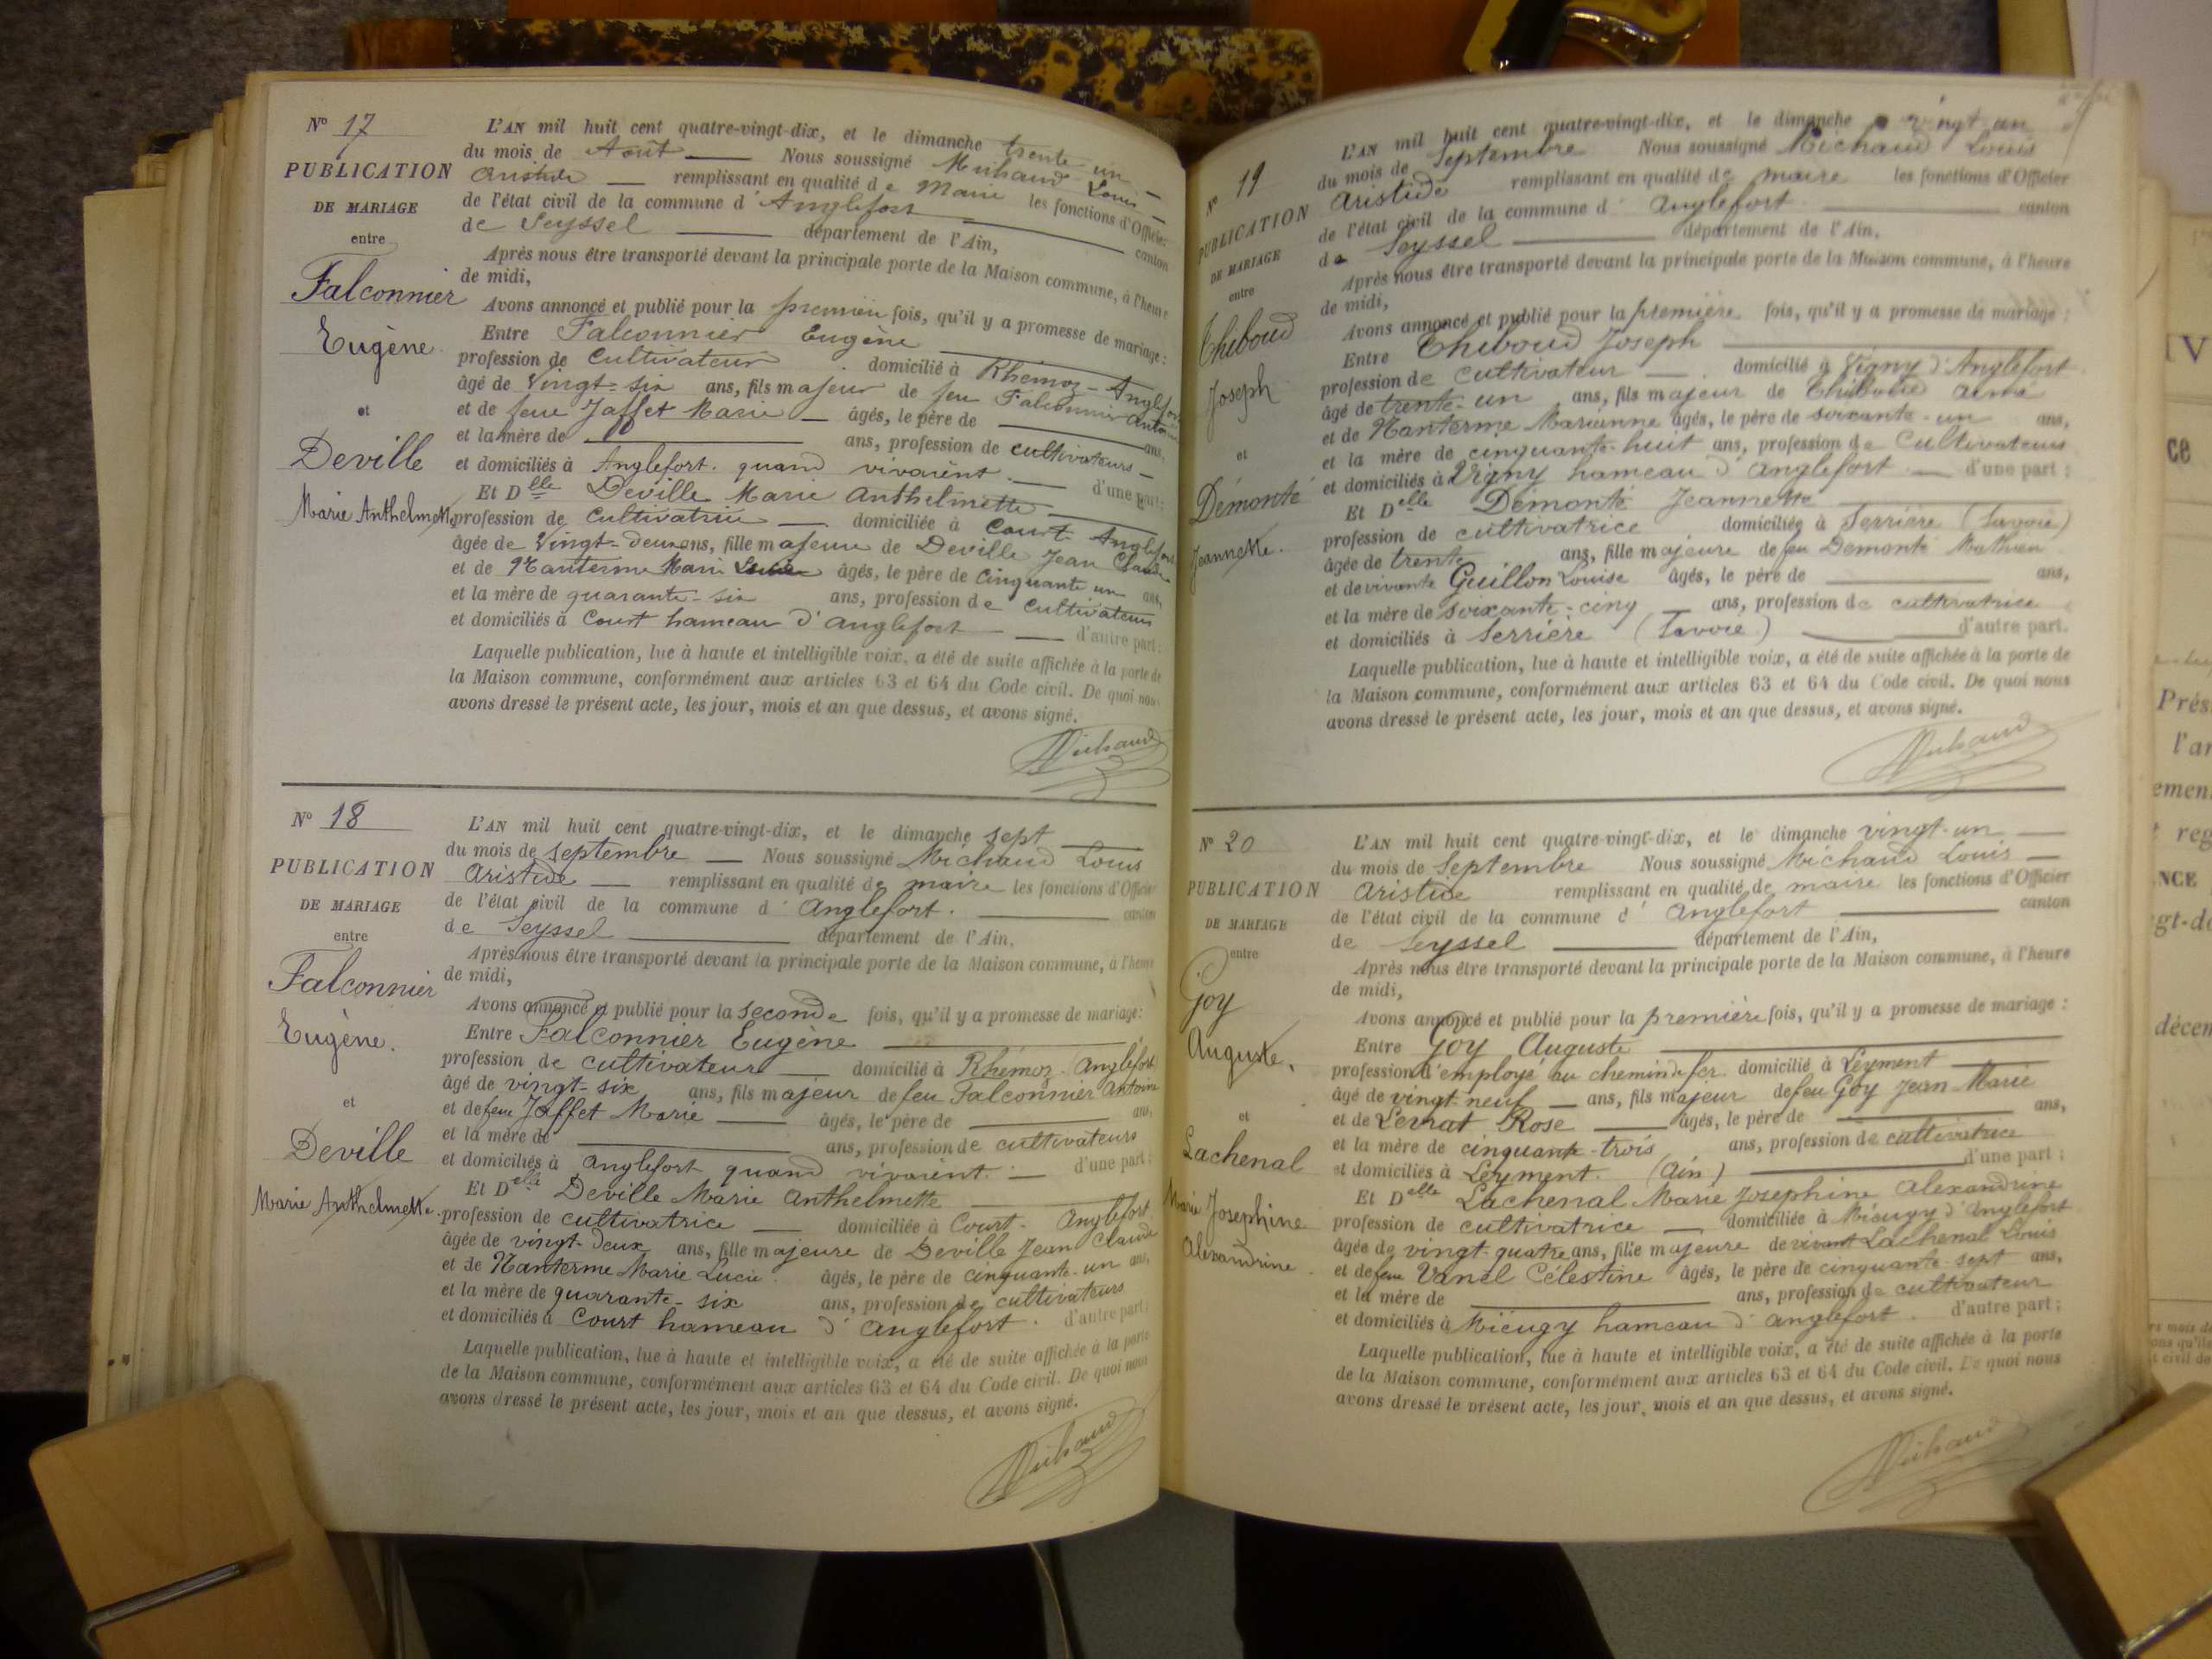 N° 17
PUBLICATION
DE MARIAGE
entre
Falconnier
Eugène.
et
Deville
Marie Anthelmette
L'AN mil huit cent quatre-vingt-dix, et le dimanche trente-un
du mois de Août Nous soussigné Michaud Louis
Aristide remplissant en qualité de Maire les fonctions d'Officier
de l'état civil de la commune d'Anglefort canton
de Seyssel département de l'Ain,
Après nous être transporté devant la principale porte de la Maison commune, à l'heure
de midi,
Avons annoncé et publié pour la première fois, qu'il y a promesse de mariage :
Entre Falconnier Eugène
profession de Cultivateur domicilié à Rhémoz-Anglefort
âgé de Vingt-six ans, fils majeur de feu Falconnier Antoine
et de feue Jaffet Marie âgés, le père de ans,
et la mère de ans, profession de cultivateurs
et domiciliés à Anglefort quand vivaient. d'une part;
Et Dlle Deville Marie Anthelmette
profession de Cultivatrice domiciliée à Court-Anglefort
âgée de Vingt-deux ans, fille majeure de Deville Jean Claude
et de Nanterme Marie Lucie âgés, le père de Cinquante un ans,
et la mère de quarante-six ans, profession de cultivateurs
et domiciliés à Court hameau d'Anglefort d'autre part;
Laquelle publication, lue à haute et intelligible voix, a été de suite affichée à la porte de
la Maison commune, conformément aux articles 63 et 64 du Code civil. De quoi nous
avons dressé le présent acte, les jour, mois et an que dessus, et avons signé.
Michaud
N° 18
PUBLICATION
DE MARIAGE
entre
Falconnier
Eugène.
et
Deville
Marie Anthelmette.
L'AN mil huit cent quatre-vingt-dix, et le dimanche sept
du mois de septembre Nous soussigné Michaud Louis
Aristide remplissant en qualité de maire les fonctions d'Officier
de l'état civil de la commune d'Anglefort. canton
de Seyssel département de l'Ain,
Après nous être transporté devant la principale porte de la Maison commune, à l'heure
de midi,
Avons annoncé et publié pour la seconde fois, qu'il y a promesse de mariage:
Entre Falconnier Eugène
profession de cultivateur domicilié à Rhémoz-Anglefort
âgé de vingt-six ans, fils majeur de feu Falconnier Antoine
et de feue Jaffet Marie âgés, le père de ans,
et la mère de ans, profession de cultivateurs
et domiciliés à Anglefort quand vivaient. d'une part;
Et Delle Deville Marie Anthelmette
profession de cultivatrice domiciliée à Court-Anglefort
âgée de vingt-deux ans, fille majeure de Deville Jean Claude
et de Nanterme Marie Lucie. âgés, le père de cinquante-un ans,
et la mère de quarante-six ans, profession de cultivateurs
et domiciliés à Court hameau d'Anglefort. d'autre part;
Laquelle publication, lue à haute et intelligible voix, a été de suite affichée à la porte
de la Maison commune, conformément aux articles 63 et 64 du Code civil. De quoi nous
avons dressé le présent acte, les jour, mois et an que dessus, et avons signé.
Michaud
N° 19
PUBLICATION
DE MARIAGE
entre
Thiboud
Joseph
et
Démonté
Jeannette.
L'AN mil huit cent quatre-vingt-dix, et le dimanche vingt-un
du mois de Septembre Nous soussigné Michaud Louis
Aristide remplissant en qualité de maire les fonctions d'Officier
de l'état civil de la commune d'Anglefort canton
de Seyssel département de l'Ain,
Après nous être transporté devant la principale porte de la Maison commune, à l'heure
de midi,
Avons annoncé et publié pour la première fois, qu'il y a promesse de mariage :
Entre Thiboud Joseph
profession de cultivateur domicilié à Vigny d'Anglefort
âgé de trente-un ans, fils majeur de Thiboud Aimé
et de Nanterme Marianne âgés, le père de soixante-un ans,
et la mère de cinquante-huit ans, profession de Cultivateurs
et domiciliés à Vigny hameau d'Anglefort d'une part;
Et Delle Démonté Jeannette
profession de cultivatrice domiciliée à Serrière (Savoie)
âgée de trente ans, fille majeure de feu Démonté Mathieu
et de vivante Guillon Louise âgés, le père de ans,
et la mère de soixante-cinq ans, profession de cultivatrice
et domiciliés à Serrière (Savoie) d'autre part.
Laquelle publication, lue à haute et intelligible voix, a été de suite affichée à la porte de
la Maison commune, conformément aux articles 63 et 64 du Code civil. De quoi nous
avons dressé le présent acte, les jour, mois et an que dessus, et avons signé.
Michaud
N° 20
PUBLICATION
DE MARIAGE
entre
Goy
Auguste.
et
Lachenal
Marie Josephine
Alexandrine
L'AN mil huit cent quatre-vingt-dix, et le dimanche vingt-un
du mois de Septembre Nous soussigné Michaud Louis
Aristide remplissant en qualité de maire les fonctions d'Officier
de l'état civil de la commune d'Anglefort canton
de Seyssel département de l'Ain,
Après nous être transporté devant la principale porte de la Maison commune, à l'heure
de midi,
Avons annoncé et publié pour la première fois, qu'il y a promesse de mariage :
Entre Goy Auguste
profession d'employé au chemin de fer domicilié à Leyment
âgé de vingt-neuf ans, fils majeur de feu Goy Jean-Marie
et de Levrat Rose âgés, le père de ans,
et la mère de cinquante-trois ans, profession de cultivatrice
et domiciliés à Leyment. (Ain) d'une part;
Et Delle Lachenal Marie Josephine Alexandrine
profession de cultivatrice domiciliée à Mieugy d'Anglefort
âgée de vingt-quatre ans, fille majeure de vivant Lachenal Louis
et de feue Vanel Célestine âgés, le père de cinquante-sept ans,
et la mère de ans, profession de cultivateur
et domiciliés à Mieugy hameau d'Anglefort. d'autre part;
Laquelle publication, lue à haute et intelligible voix, a été de suite affichée à la porte
de la Maison commune, conformément aux articles 63 et 64 du Code civil. De quoi nous
avons dressé le présent acte, les jour, mois et an que dessus, et avons signé.
Michaud